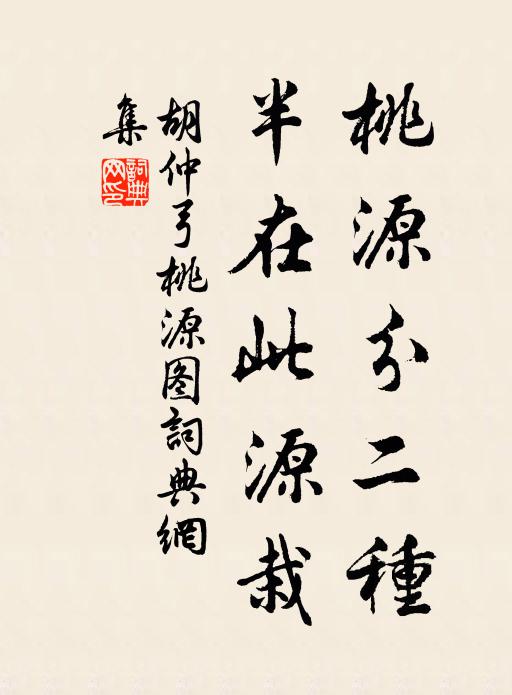 桃源分二種
半在此源栽
胡仲弓桃源图詞典網
集
詞典
网印